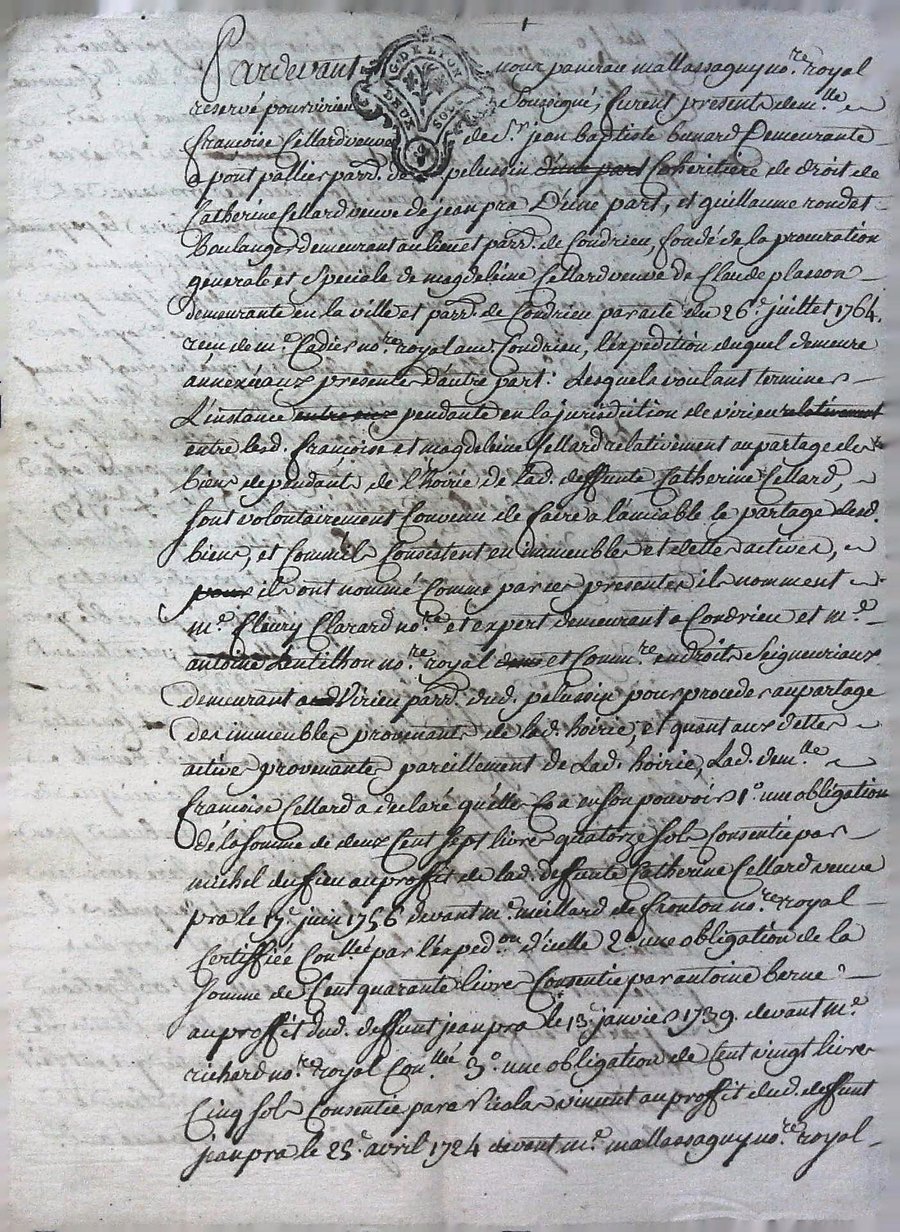 Pardevant nous pancrace mallassagny no.re royal
reservé pour virieu Soussigné, furent presents dem.lle
francoise Cellard veuve de S.r jean baptiste bonard Demeurante
a pont pallier parr. de pelussin d'une part Coheritiere de droit de
Catherine Cellard veuve de jean pra D'une part, et guillaume rondet
Boulanger demeurant au lieu et parr. de Condrieu, fondé de la procuration
generale et Speciale de magdeleine Cellard veuve de Claude plasson
demeurante en la ville et parr. de Condrieu par acte du 26.e juillet 1764.
recu de m.e Cadier no.re royal aud. Condrieu, l'expedition duquel demeure
annexée aux presentes d'autre part: Lesquels voulant terminer
L'instance entre eux pendante en la jurisdiction de virieu relativement
entre lesd. francoise et magdeleine Cellard relativement au partage des
biens dependants de l'hoirie de lad. deffunte Catherine Cellard,
sont volontairement Convenu de faire a l'amiable le partage desd.
biens, et Comme ils Consistent en immeubles et dettes actives,
pour ils ont nommé Comme par ces presentes ils nomment
m.e fleury Clarard no.re et expert demeurant a Condrieu et m.e
antoine Lentilhon no.re royal dems et Comm.re en droits Seigneuriaux
demeurant aud Virieu parr. dud. pelussin pour proceder au partage
des immeubles provenants de lad. hoirie, et quant aux dettes
active provenantes pareillement de Lad. hoirie, Lad. dem.lle
francoise Cellard a declaré qu'elle en a en son pouvoir 1.o une obligation
de la somme de deux Cent sept livres quatorze sols Consentie par
michel duffieu au proffit de lad. deffunte Catherine Cellard veuve
pra le 17.e juin 1756 devant m.e meillard de fronton no.re royal
Certiffiée Con.llée par l'exped.on d'icelle 2.o une obligation de la
somme de Cent quarante livres Consentie par antoine berne
au proffit dud. deffunt jean pra le 13.e janvier 1739. devant m.e
richard no.re royal Con.llée 3.o une obligation de Cent vingt livres
Cinq sols Consentie par Nicolas vincent au proffit dud. deffunt
jean pra le 25.e avril 1724 devant m.e mallassagny no.re royal
G. DE LYON